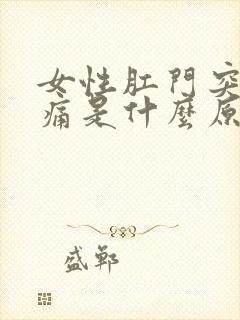 女性肛門突
痛是什麼原
盛鄴